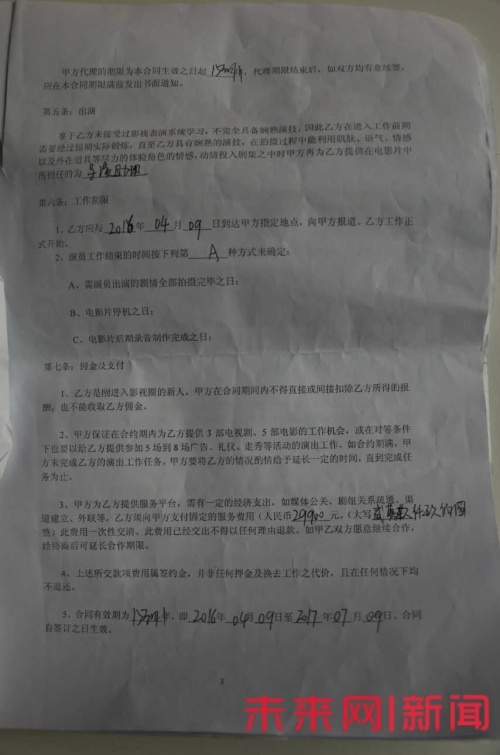 甲方代理的期限为本合同生效之日起 15个月，代理期限结束后，如双方均有意续签，
应在本合同期限满前发出书面通知。
第五条：出演
鉴于乙方未接受过影视表演系统学习，不完全具备娴熟演技，因此乙方在进入工作前期
需要经过短期实际锻炼，直至乙方具有娴熟的演技，在拍摄过程中能利用肌肤、语气、情感
以及外在道具等尽力的体验角色的情感，动情投入剧集之中时甲方再为乙方提供在电影片中
所担任的为
第六条：工作期限
1、乙方应与 2016 年 04 月 09 日到达甲方指定地点，向甲方报道。乙方工作正
式开始。
2、演员工作结束的时间按下列第 A 种方式来确定：
A、需演员出演的剧情全部拍摄完毕之日；
B、电影片停机之日；
C、电影片后期录音制作完成之日；
第七条：佣金及支付
1、乙方是刚进入影视圈的新人，甲方在合同期间内不得直接或间接扣除乙方所得的报
酬，也不能收取乙方佣金。
2、甲方保证在合约期内为乙方提供 3 部电视剧、5 部电影的工作机会，或在对等条件
下也要以给乙方提供参加 5 场到 8 场广告、礼仪、走秀等活动的演出工作。如合约期满，甲
方未完成乙方的演出工作任务，甲方要将乙方的情况酌情给予延长一定的时间，直到完成任
务为止。
3、甲方为乙方提供服务平台，需有一定的经济支出，如媒体公关、剧组关系疏通、渠
道建立、外联等，乙方须向甲方支付固定的服务费用（人民币 29900 元，（大写
整）此费用一次性交清。此费用已经交出不得以任何理由退款。如甲乙双方愿意继续合作，
经协商后可延长合作期限。
4、上述所交款项费用属签约金，并非任何押金及换去工作之代价，且在任何情况下均
不退还。
5、合同有效期为 15个月，即 2016 年 04 月 09 日至 2017 年 07 月 09 日。合同
自签订之日生效。
3
未来网|新闻